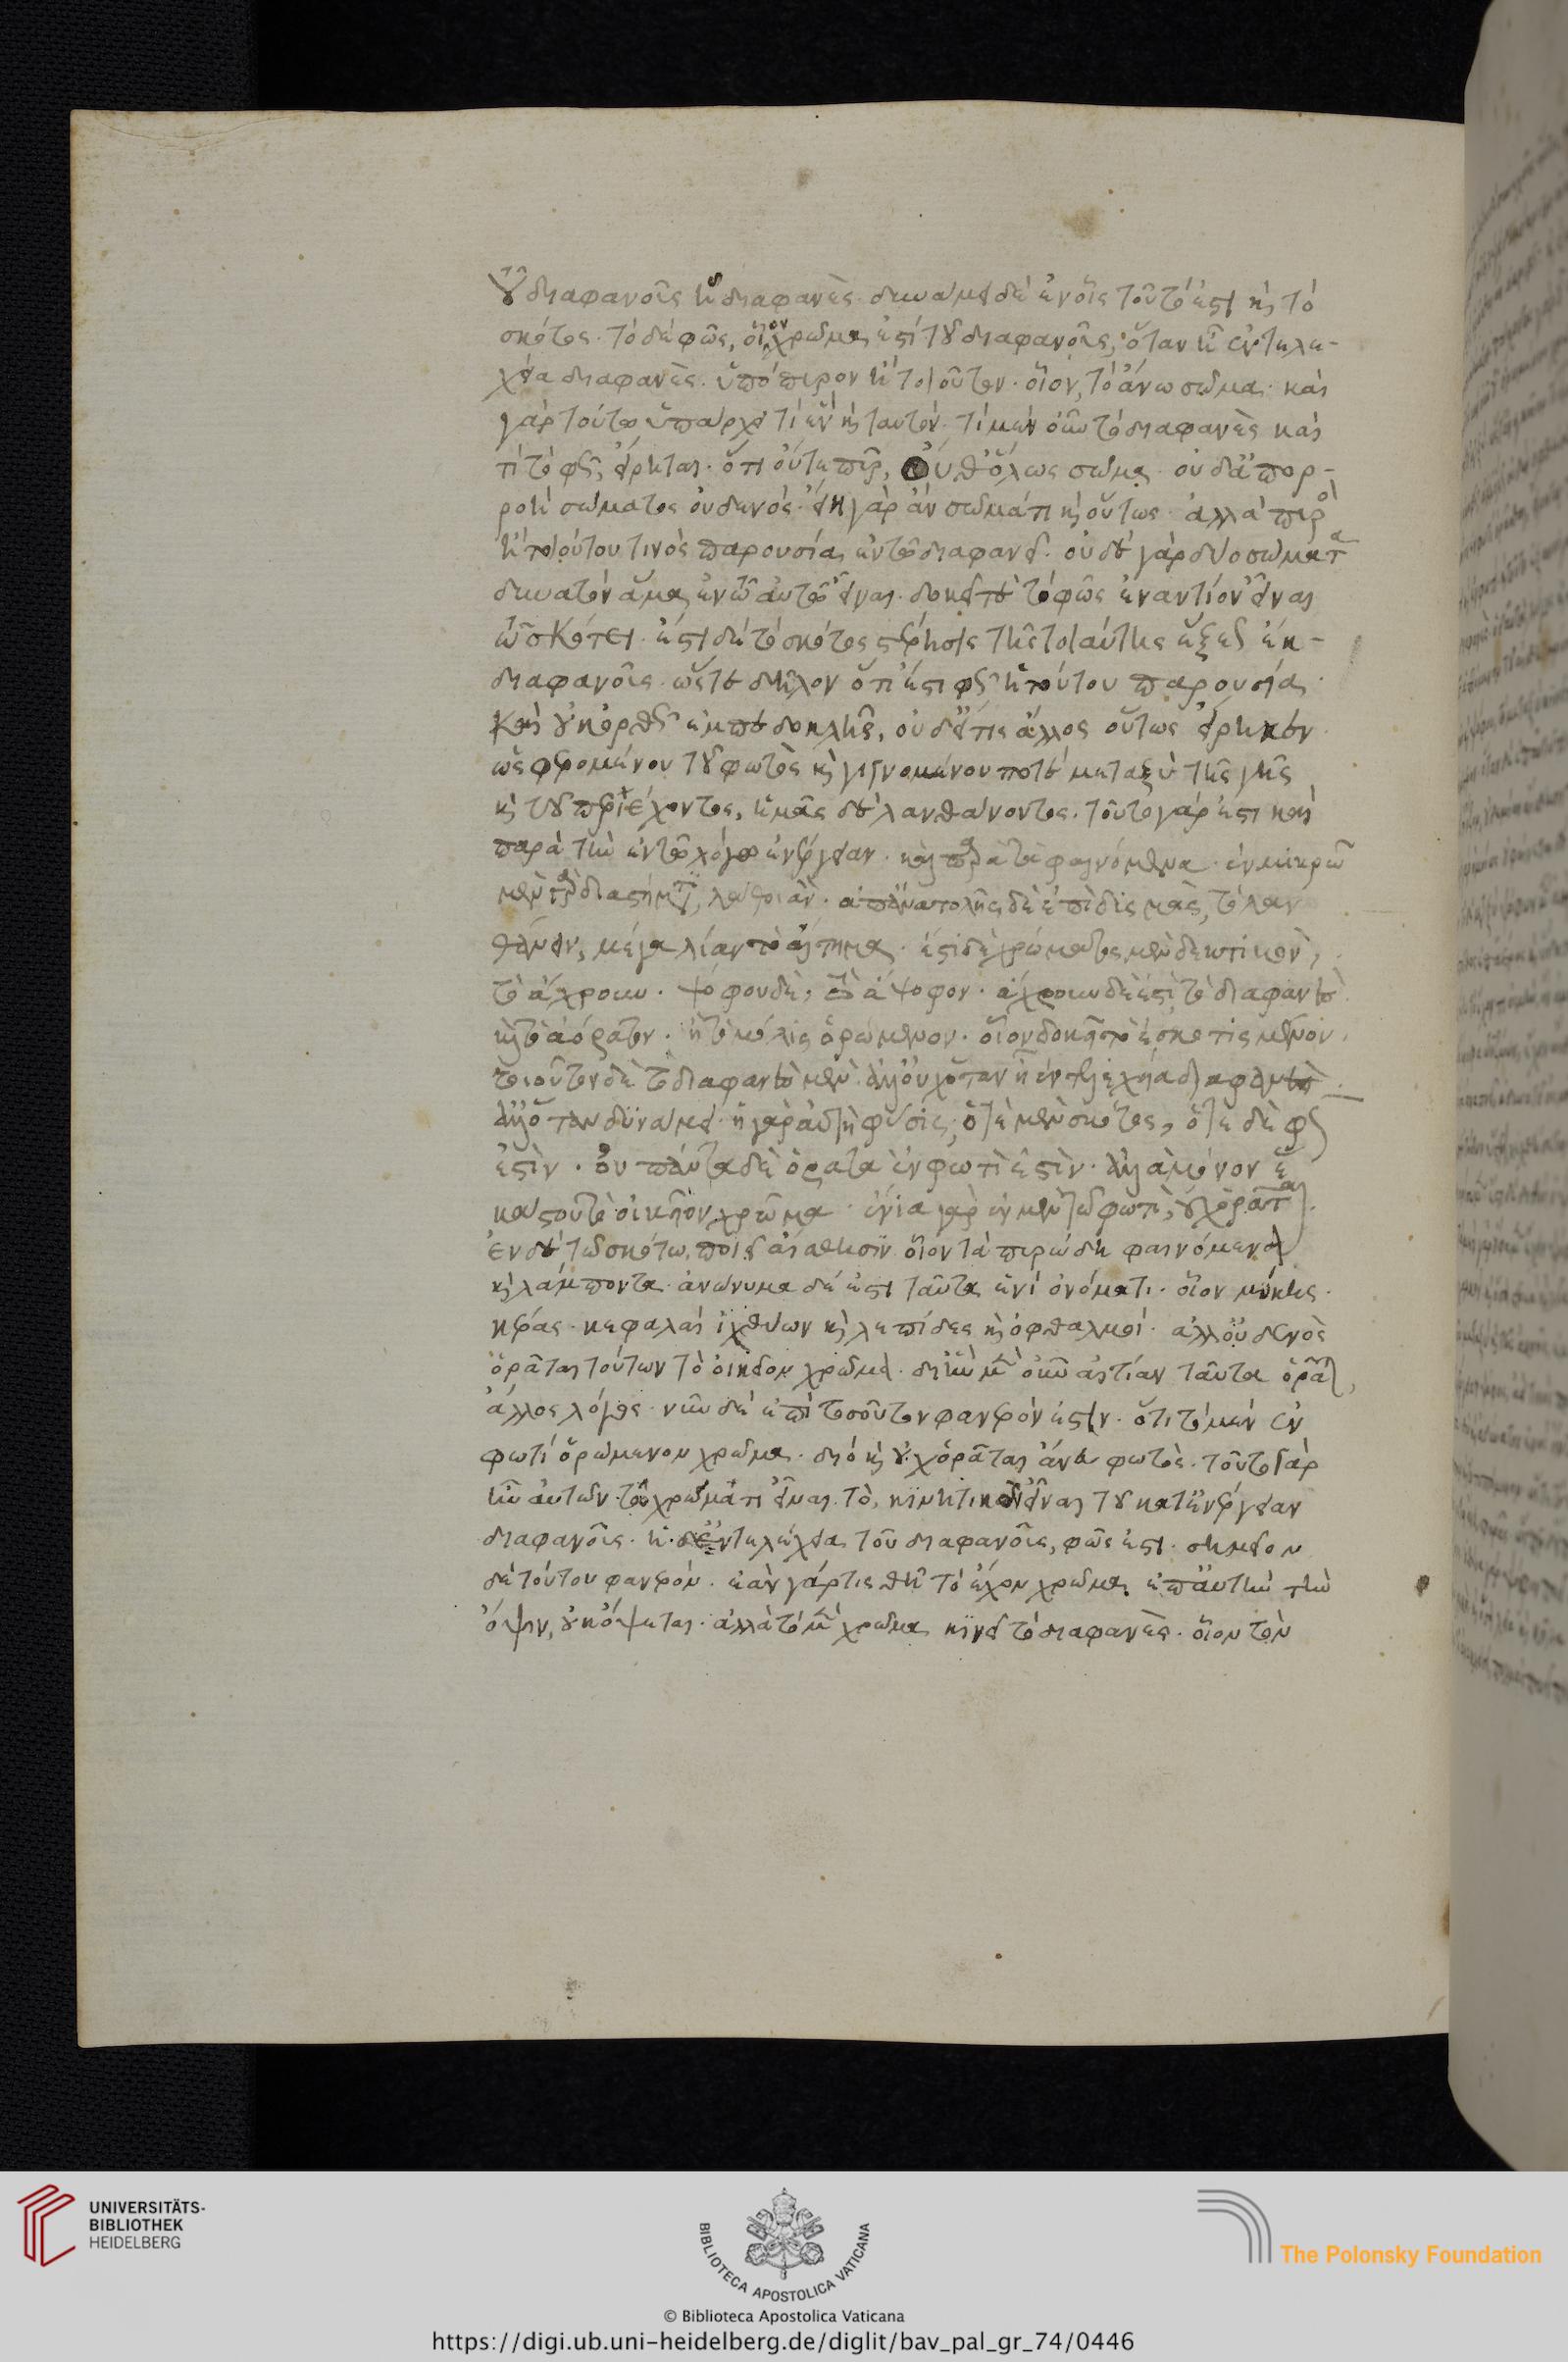 οῦ διαφανοῦς ᾗ διαφανές. δυνάμει δὲ ἐν οἷς τοῦτό ἐστι καὶ τὸ
σκότος. τὸ δὲ φῶς, οἷον χρῶμα ἐστὶ τοῦ διαφανοῦς, ὅταν ᾖ ἐντελε-
χείᾳ διαφανὲς. ὑπὸ πυρὸς ἢ τοιοῦτον. οἷον, τὸ ἄνω σῶμα. καὶ
γὰρ τούτω ὑπάρχει τι ἓν καὶ ταυτόν. τί μὲν οὖν τὸ διαφανὲς καὶ
τί τὸ φῶς, εἴρηται. ὅτι οὔτε πῦρ, οὔθ' ὅλως σῶμα. οὐδ' ἀπορ-
ροὴ σώματος οὐδενός. εἴη γὰρ ἄν σῶμά τι καὶ οὕτως. ἀλλὰ πυρὸς
ἢ τοιούτου τινὸς παρουσία ἐν τῶ διαφανεῖ. οὐδὲ γὰρ δύο σώματα
δυνατὸν ἅμα ἐν τῶ αὐτῶ εἶναι. δοκεῖ τε τὸ φῶς ἐναντίον εἶναι
τῶ σκότει. ἔστι δὲ τὸ σκότος στέρησις τῆς τοιαύτης ἕξεως ἐκ
διαφανοῦς. ὥστε δῆλον ὅτι ἐστι φῶς ἡ τούτου παρουσία.
καὶ οὐκ ὀρθῶς ἐμπεδοκλῆς, οὐδ' εἴ τις ἄλλος οὕτως εἴρηκεν.
ὡς φερομένου τοῦ φωτὸς καὶ γιγνομένου ποτὲ μεταξὺ τῆς γῆς
καὶ τοῦ περιέχοντος, ἡμᾶς δὲ λανθάνοντος. τοῦτο γάρ ἐστι καὶ
παρὰ τὴν ἐν τῶ λόγω ἐνέργειαν. καὶ παρὰ τὰ φαινόμενα. ἐν μικρῶ
μὲν γὰρ διαστήματι, λάθοι ἂν. ἀπ' ἀνατολῆς δὲ ἐπὶ δυσμὰς, τὸ λαν
θάνειν, μέγα λίαν τὸ αἴτημα. ἔστι δὲ χρώματος μὲν δεκτικὸν,
τὸ ἄχρουν. ψόφου δὲ, τὸ ἄψοφον. ἄχρουν δὲ ἐστὶ τὸ διαφανὲς
καὶ τὸ ἀόρατον. ἢ τὸ μόλις ὁρώμενον. οἷον δοκεῖ τὸ ἐσκοτισμένον.
τοιοῦτον δὲ τὸ διαφανὲς μὲν. ἀλλ' οὐχ ὅταν ᾖ ἐντελεχείᾳ διαφανὲς
ἀλλ' ὅταν δυνάμει. ἡ γὰρ αὐτὴ φύσις, ὁτὲ μὲν σκότος, ὁτὲ δὲ φῶς
ἐστὶν. οὐ πάντα δὲ ὁρατὰ ἐν φωτὶ ἐστὶν. ἀλλὰ μόνον ἑ
κάστου τὸ οἰκεῖον χρῶμα. ἔνια γὰρ ἐν μὲν τῶ φωτὶ, οὐχ ὁρᾶται.
ἐν δὲ τῶ σκότω, ποιεῖ αἴσθησιν. οἷον τὰ πυρώδη φαινόμενα
καὶ λάμποντα. ἀνώνυμα δέ ἐστι ταῦτα ἑνὶ ὀνόματι. οἷον μύκης.
κέρας. κεφαλαὶ ἰχθύων καὶ λεπίδες καὶ ὀφθαλμοί. ἀλλ' οὐδενὸς
ὁρᾶται τούτων τὸ οἰκεῖον χρῶμα. δι' ἣν μὲν οὖν αἰτίαν ταῦτα ὁρᾶται,
ἄλλος λόγος. νῦν δὲ ἐπὶ τοσοῦτον φανερόν ἐστιν. ὅτι τὸ μὲν ἐν
φωτὶ ὁρώμενον χρῶμα. διὸ καὶ οὐχ ὁρᾶται ἄνευ φωτὸς. τοῦτο γὰρ
ἦν αὐτῶ τὸ χρώματι εἶναι. τὸ, κινητικῶ εἶναι τοῦ κατ' ἐνέργειαν
διαφανοῦς. ἡ δ' ἐντελέχεια τοῦ διαφανοῦς, φῶς ἐστι. σημεῖον
δὲ τούτου φανερόν. ἐὰν γάρ τις θῇ τὸ ἔχον χρῶμα ἐπ' αὐτὴν τὴν
ὄψιν, οὐκ ὄψεται. ἀλλὰ τὸ μὲν χρῶμα κινεῖ τὸ διαφανὲς. οἷον τὸν
UNIVERSITÄTS-
BIBLIOTHEK
HEIDELBERG
BIBLIOTECA APOSTOLICA VATICANA
The Polonsky Foundation
© Biblioteca Apostolica Vaticana
https://digi.ub.uni-heidelberg.de/diglit/bav_pal_gr_74/0446